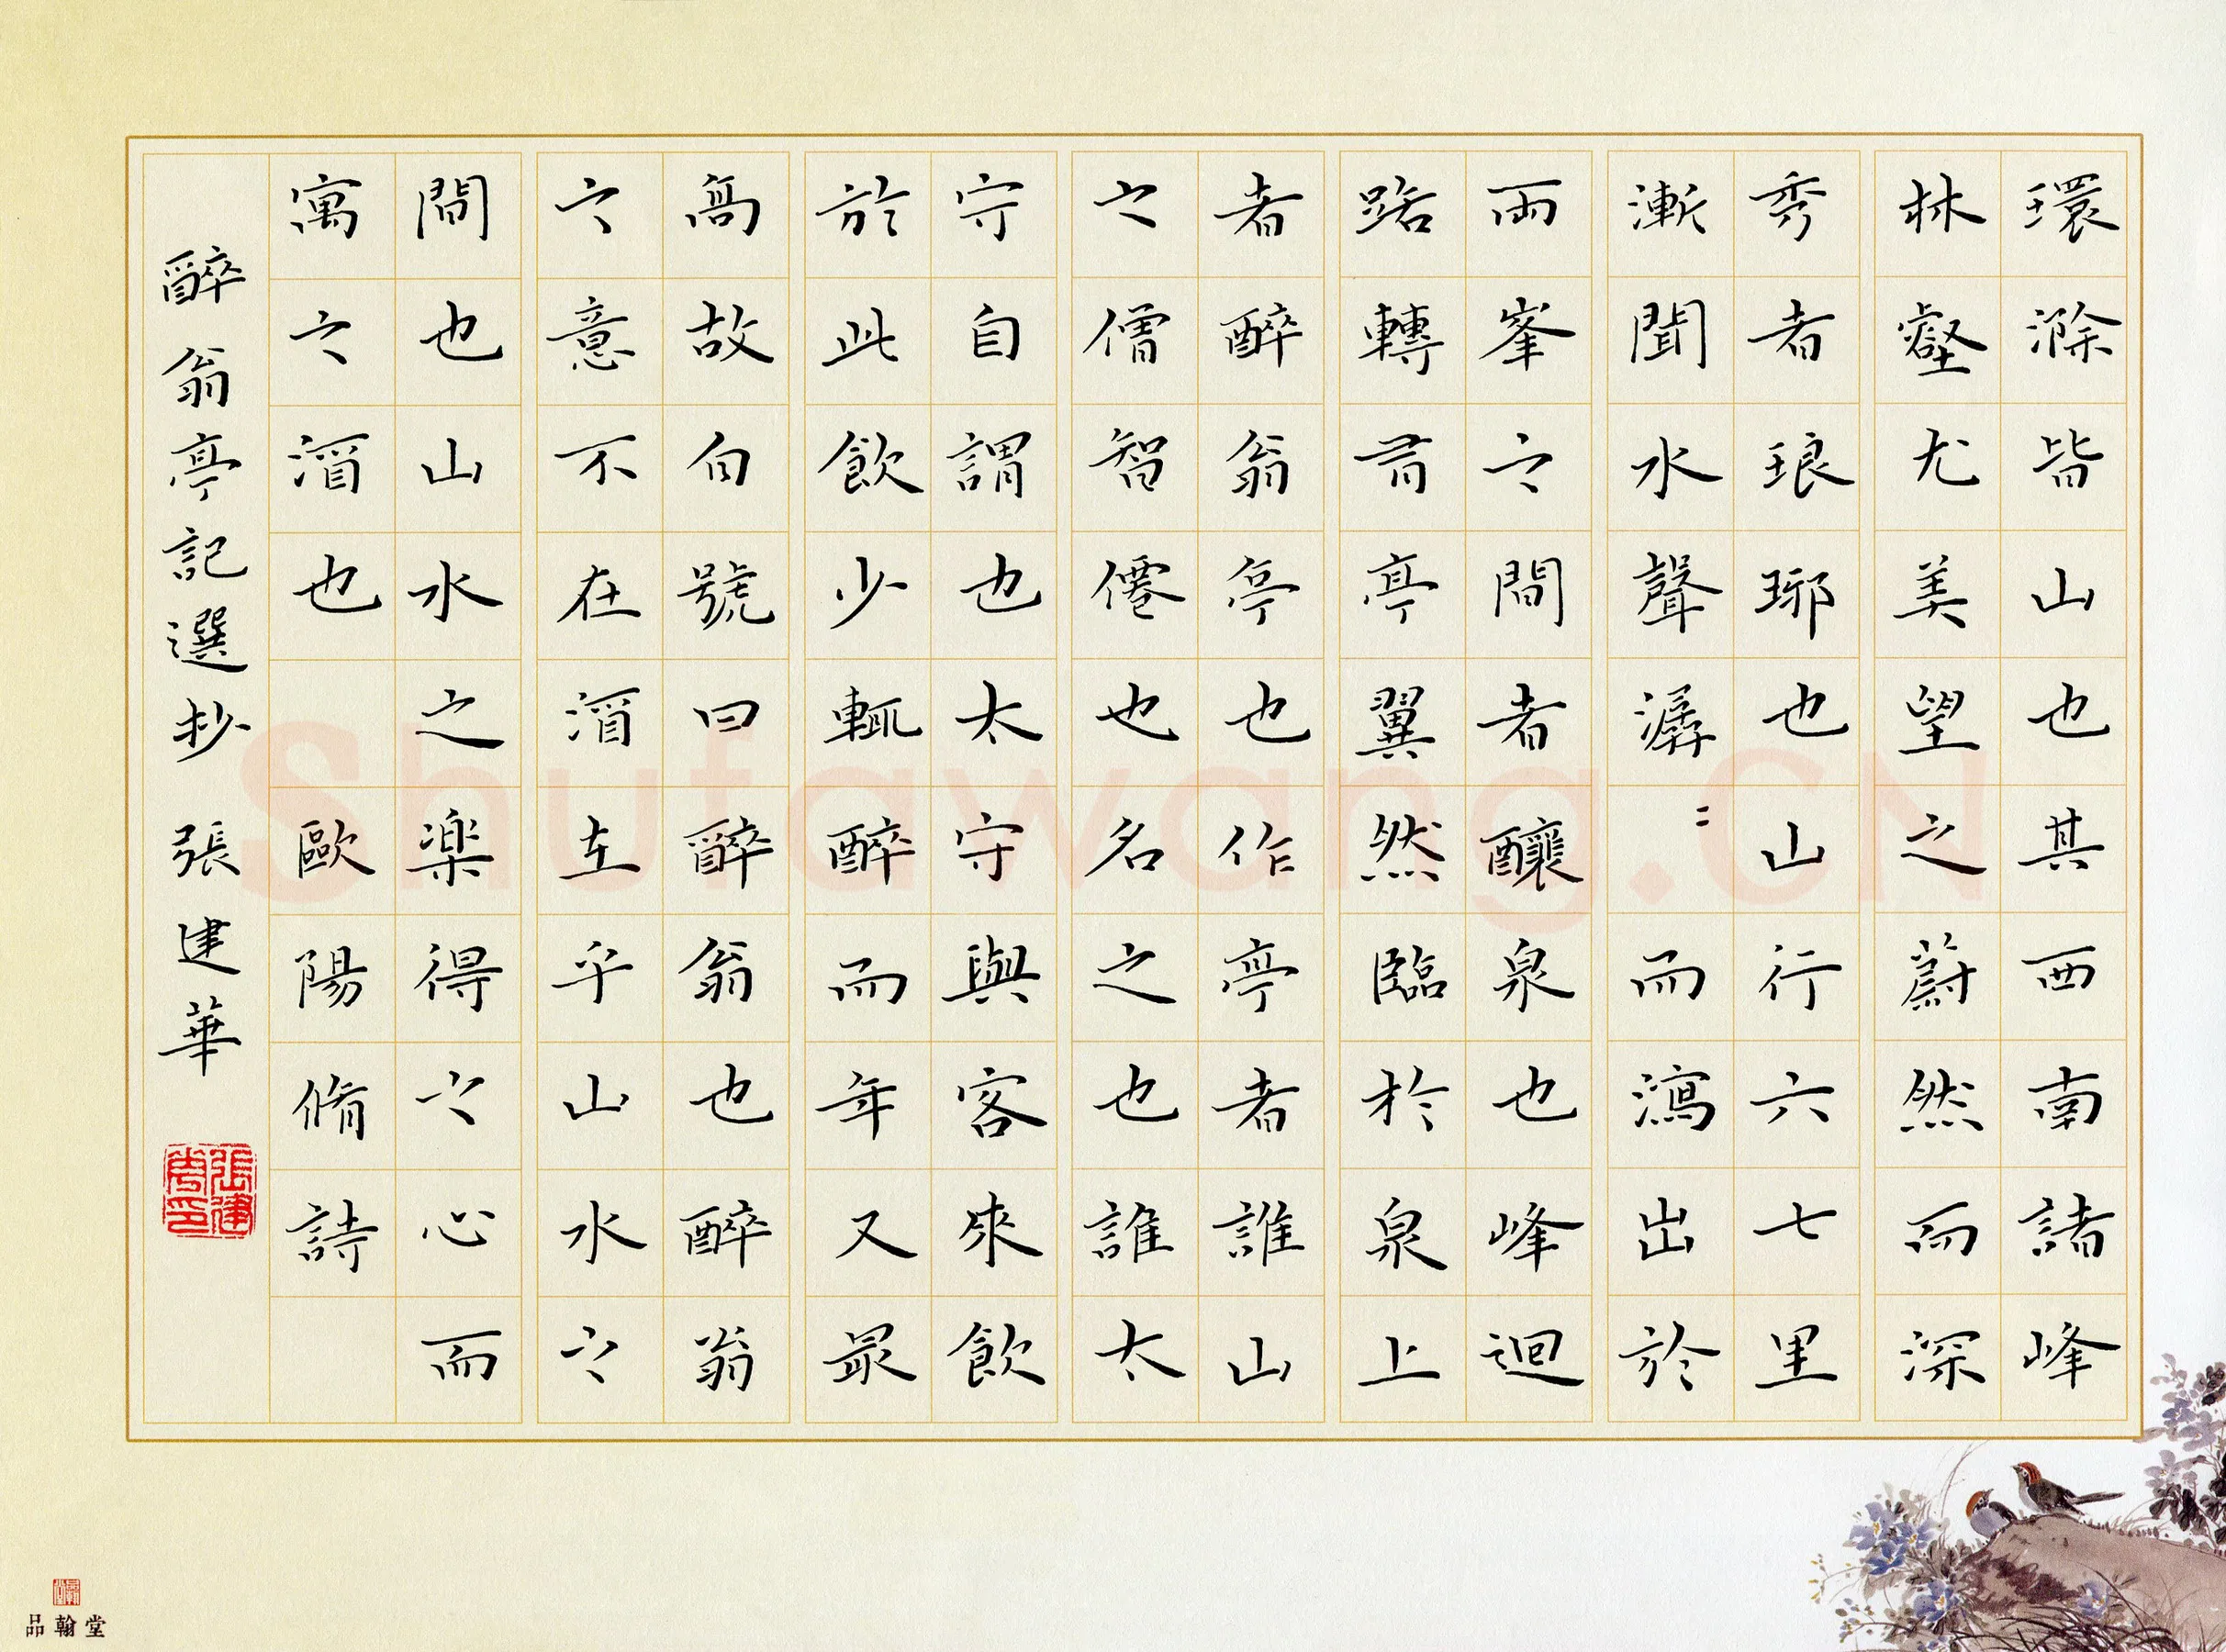 環滁皆山也其西南諸峰
林壑尤美望之蔚然而深
秀者琅琊也山行六七里
漸聞水聲潺〻而瀉出於
兩峯之間者釀泉也峰迴
路轉有亭翼然臨於泉上
者醉翁亭也作亭者誰山
之僧智僊也名之也誰太
守自謂也太守與客來飲
於此飲少輒醉而年又最
高故自號曰醉翁也醉翁
之意不在酒在乎山水之
間也山水之楽得之心而
寓之酒也 歐陽脩詩
醉翁亭記選抄 張建華
張建華印
品翰堂
Shufawang.CN